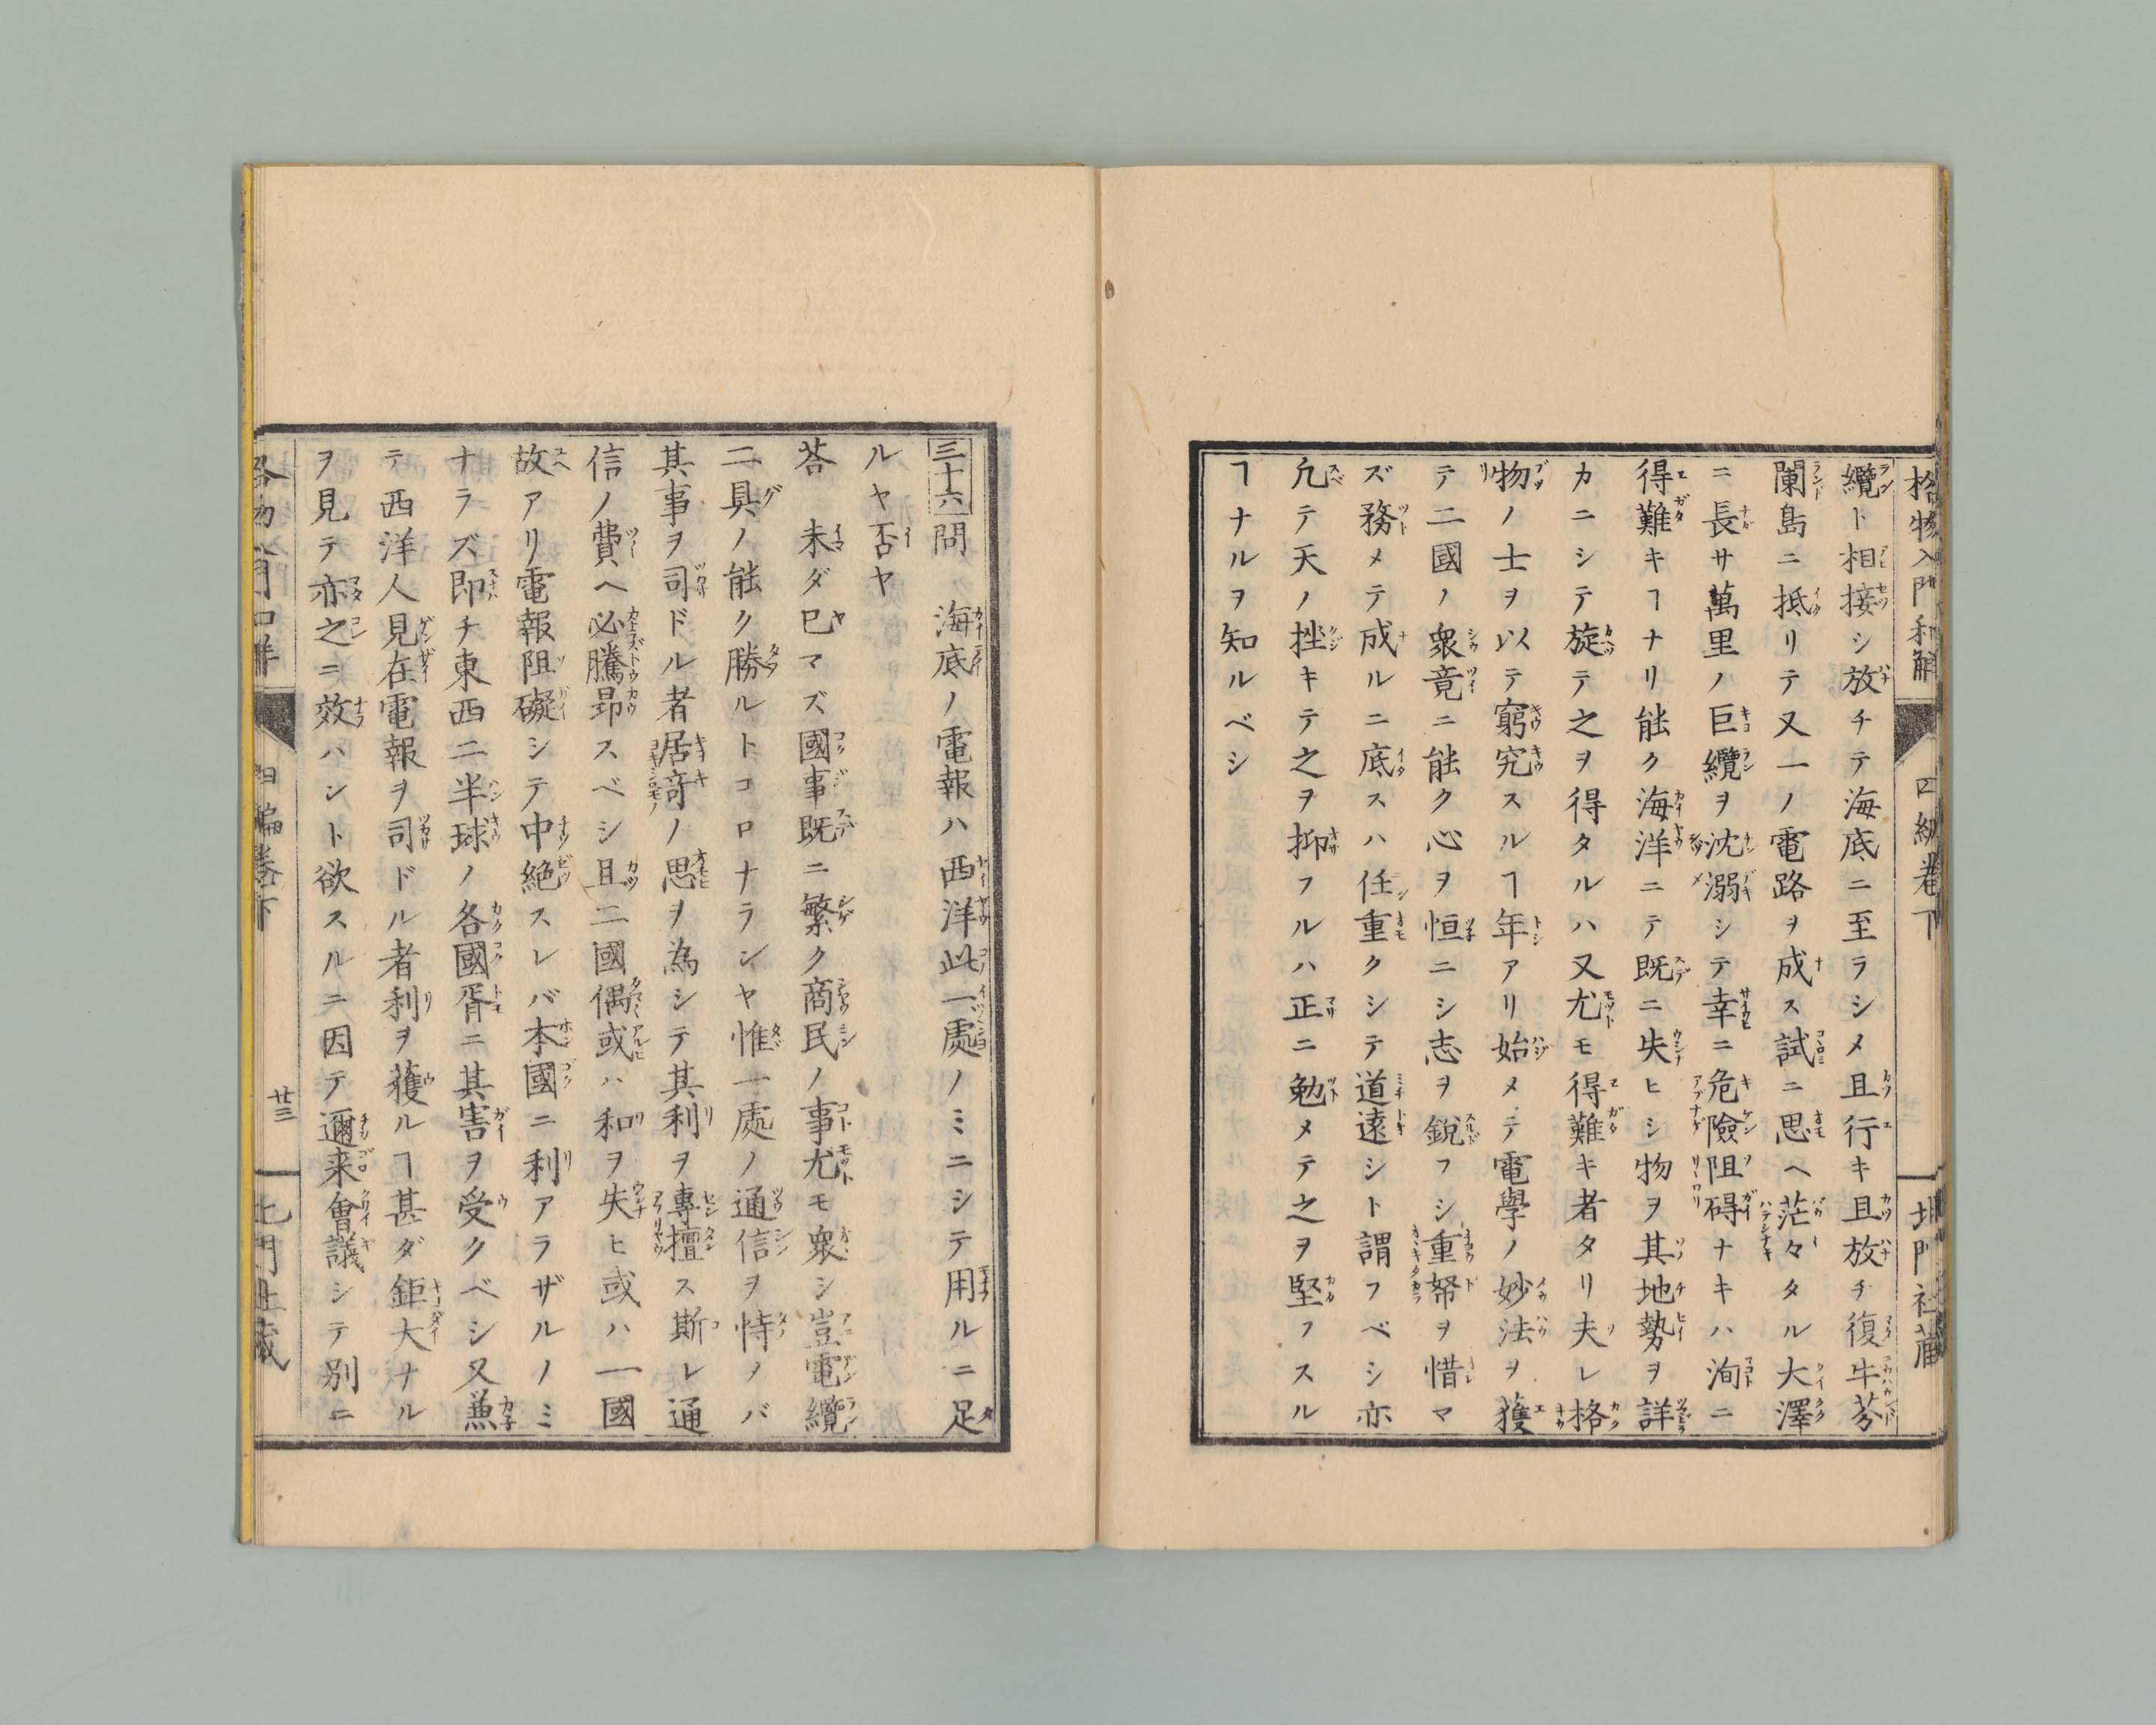 格物入門和解 四編卷下 北門社蔵
纜ト相接シ放チテ海底ニ至ラシメ且行キ且放チ復牛芬
蘭島ニ抵リテ又一ノ電路ヲ成ス試ニ思ヘ茫々タル大澤
ニ長サ萬里ノ巨纜ヲ沈溺シテ幸ニ危險阻碍ナキハ洵ニ
得難キヿナリ能ク海洋ニテ既ニ失ヒシ物ヲ其地勢ヲ詳
カニシテ旋テ之ヲ得タルハ又尤モ得難キ者タリ夫レ格
物ノ士ヲ以テ窮究スルヿ年アリ始メテ電學ノ妙法ヲ獲
テ二國ノ衆竟ニ能ク心ヲ恒ニシ志ヲ銳フシ重帑ヲ惜マ
ズ務メテ成ルニ底ス任重クシテ道遠シト謂フベシ亦
凢テ天ノ挫キテ之ヲ抑フルハ正ニ勉メテ之ヲ堅フスル
ヿナルヲ知ルベシ
三十六問 海底ノ電報ハ西洋此一處ノミニシテ用ルニ足
ルヤ否ヤ
荅 未ダ已マズ國事既ニ繁ク商民ノ事尤モ衆シ豈電纜
二具ノ能ク勝ルトコロナランヤ惟一處ノ通信ヲ恃ノバ
其事ヲ司ドル者居竒ノ思ヲ為シテ其利ヲ專擅ス斯レ通
信ノ費ヘ必騰昻スベシ且二國偶或ハ和ヲ失ヒ或ハ一國
故アリ電報阻礙シテ中絶スレバ本國ニ利アラザルノミ
ナラズ即チ東西二半球ノ各國胥ニ其害ヲ受クベシ又兼
テ西洋人見在電報ヲ司ドル者利ヲ獲ルヿ甚ダ鉅大ナル
ヲ見テ亦之ニ效ハント欲スルニ因テ邇来會議シテ別ニ
格物入門和解 四編卷下 廿三 北門社蔵